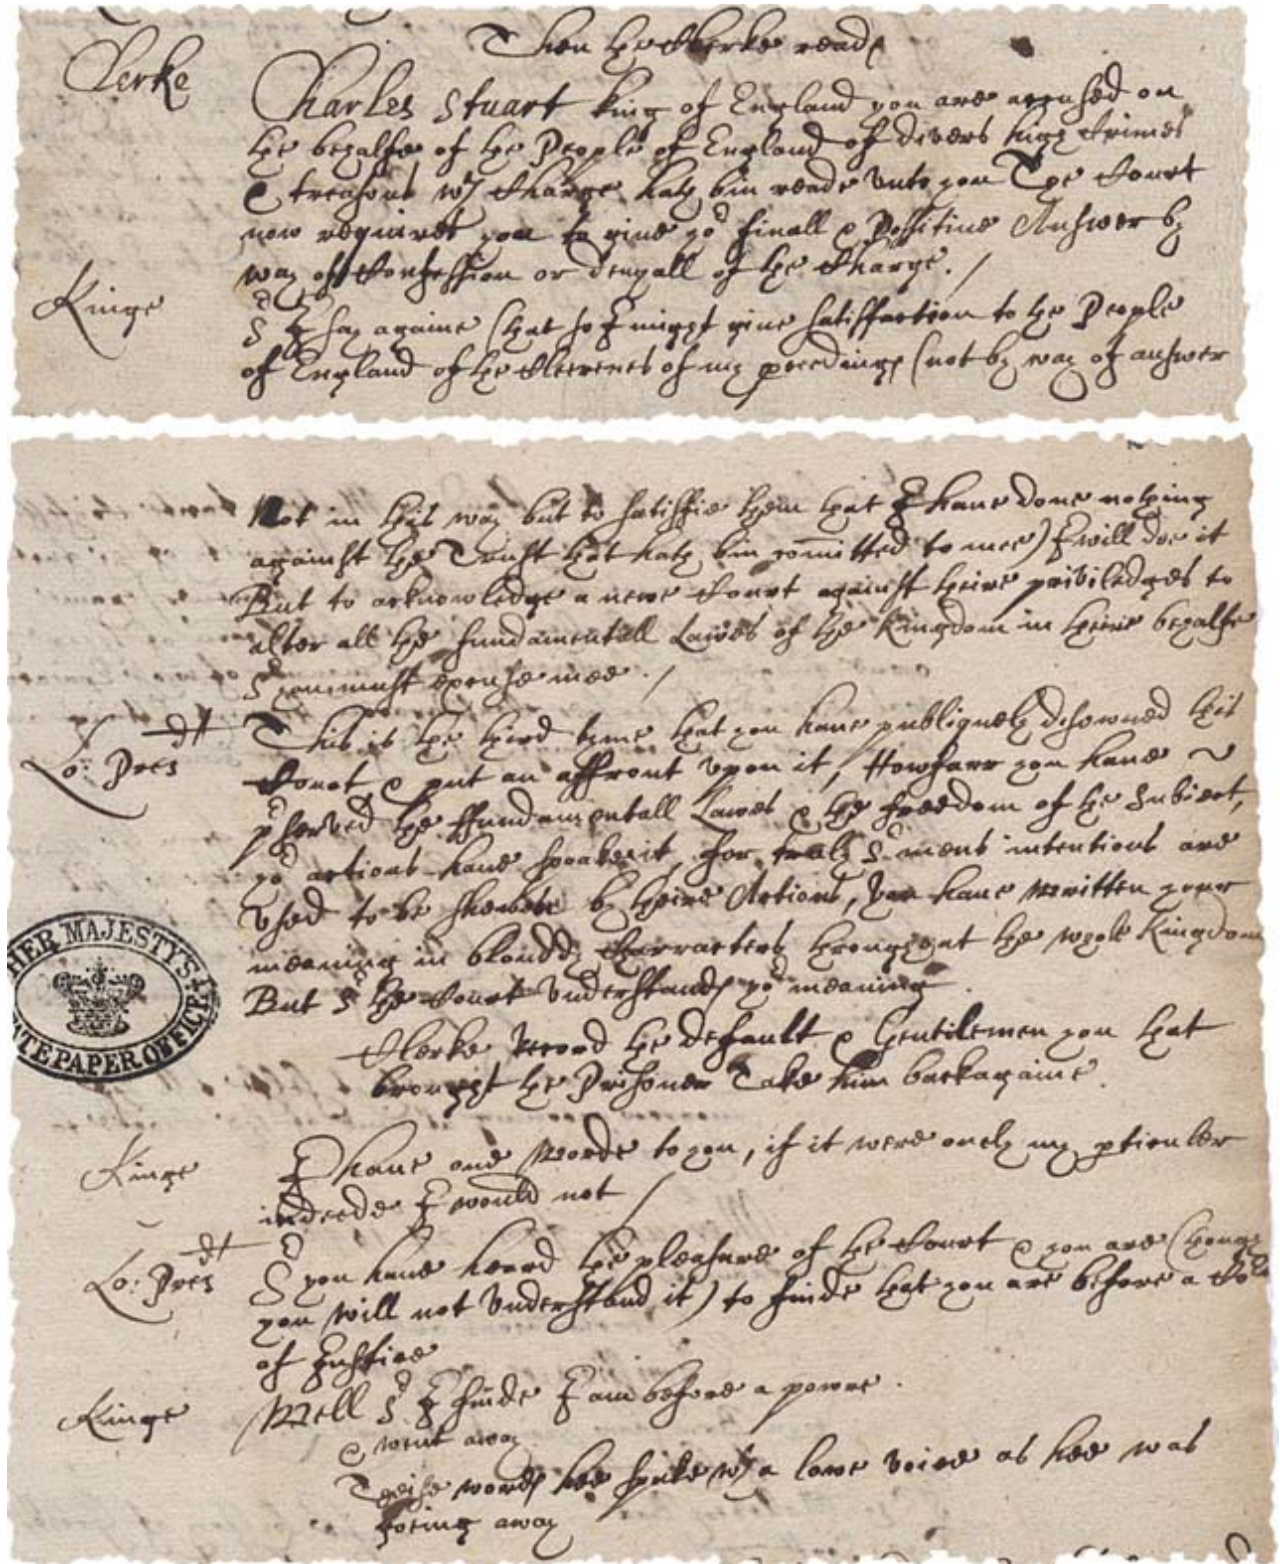 Then the Clerke reades
Clerke Charles Stuart king of England you are accused on
the behalfe of the People of England of divers high Crimes
& treasons wch Charge hath bin reade unto you The Court
now requires you to give yor finall & Possitive Answer by
way of Confession or denyall of the Charge. /
Kinge Sr I say againe (that so I might give satisfaction to the People
of England of the cleerenes of my proceedings (not by way of answer
Not in this way but to satisfie them that I have done nothing
against the Trust that hath bin comitted to mee) I will doe it
But to acknowledge a newe Court against theire priviledges to
alter all the fundamentall Lawes of the Kingdom in theire behalfe
Sr you must excuse mee. /
Lo: Presdt This is the third tyme that you have publiquely disowned this
Court & put an affront upon it, Howfarr you have
pserved the ffundamentall Lawes & the freedom of the Subiect,
yor actions have spoake it, for truly Sr mens intentions are
used to be shewed by theire Actions, You have written your
meaning in bloudy Charracters throughout the whole Kingdom
But Sr the Court Understands yor meaning.
Clerke Record the default & Gentilemen you that
brought the Prisoner Take him back againe.
Kinge I have one Worde to you, if it were onely my pticuler
indeede I would not /
Lo: Presdt Sr you have heard the pleasure of the Court & you are (though
you will not Understand it) to finde that you are before a Cort
of Justice
Kinge Well Sr I finde I am before a power.
& went away
Theise words hee spake wth a lowe voice as hee was
goeing away
HER MAJESTY'S
STATE PAPER OFFICE